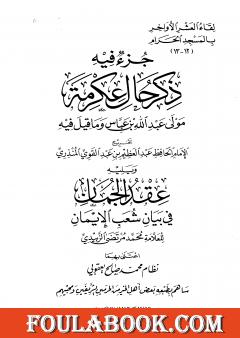 لقاء العشر الأواخر
بالمسجد الحرام
(١٢-١٣)
جزء فيه
ذكر حال عكرمة
مولى عبد الله بن عباس وما قيل فيه
تخريج
الإمام الحافظ عبد العظيم بن عبد القوي المنذري
ويليه
عقد الجمان
في بيان شعب الإيمان
للعلامة محمد مرتضى الزبيدي
اعتنى بهما
نظام محمد صالح يعقوبي
ساهم بطبعه بعض أهل الخير من الحرمين الشريفين ومحبيهم
FOULABOOK.COM